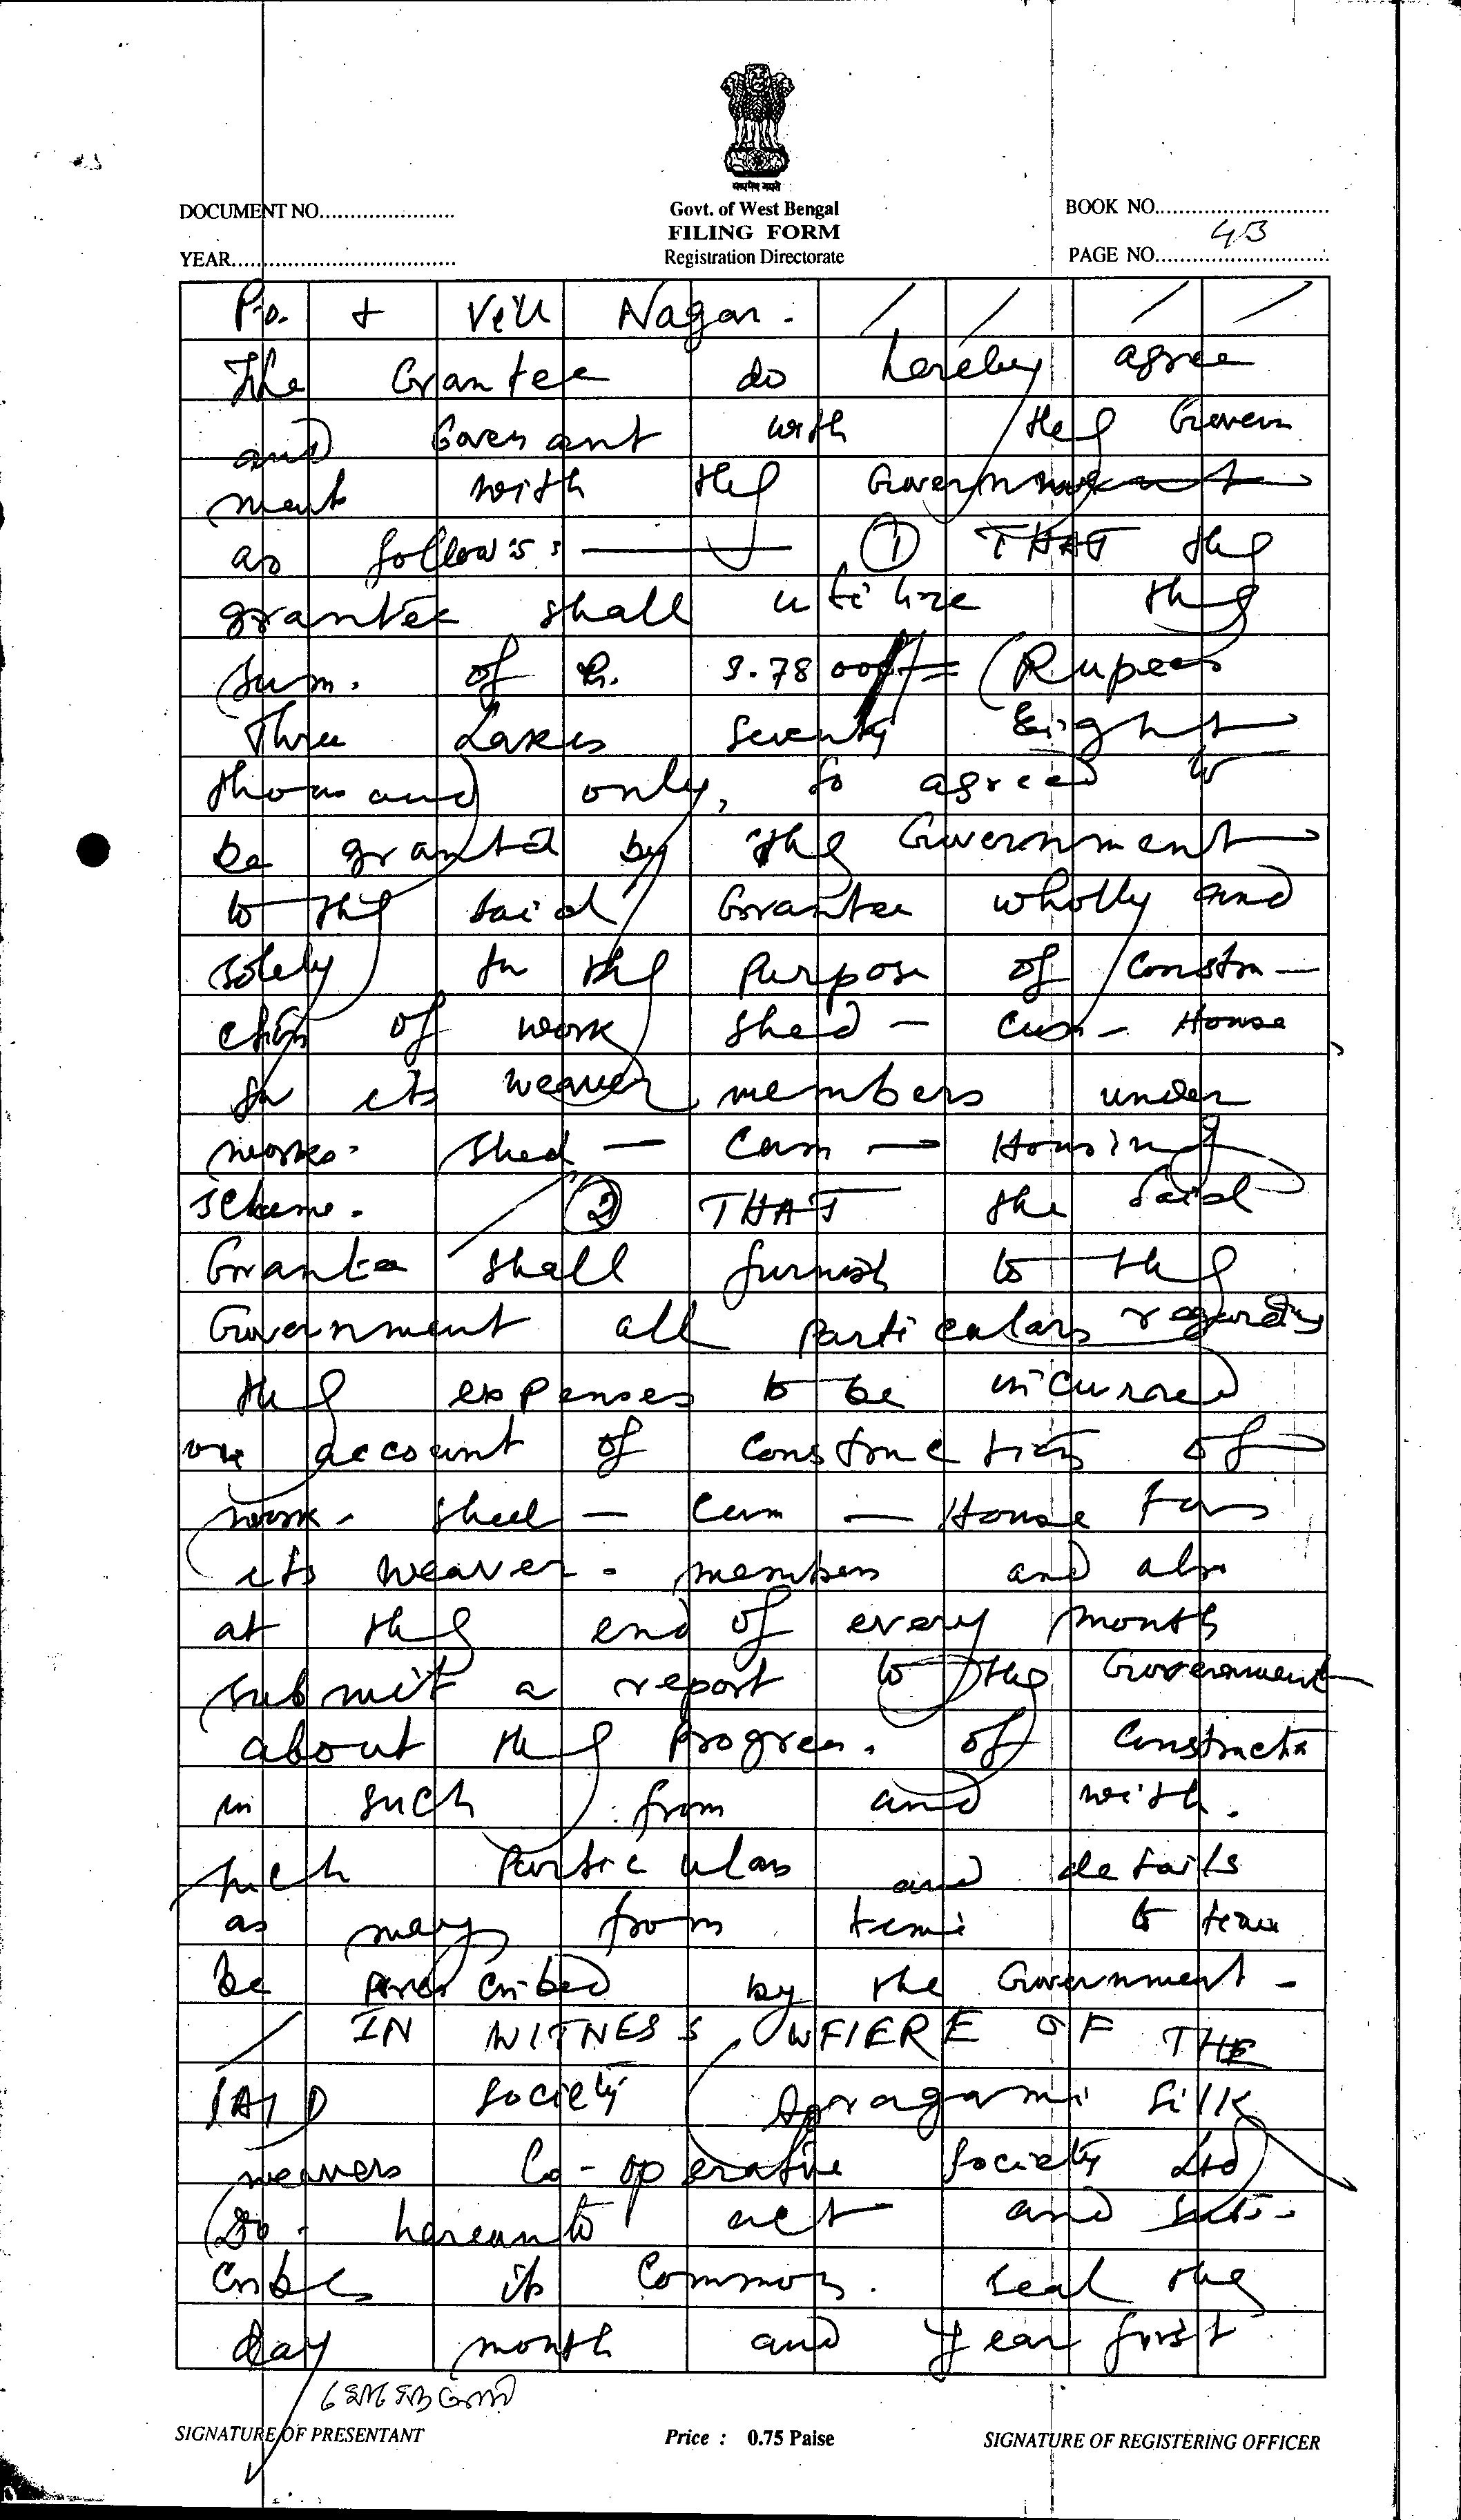 सत्यमेव जयते
DOCUMENT NO......................
Govt. of West Bengal
BOOK NO............................
FILING FORM
YEAR....................................
Registration Directorate
PAGE NO............................
43
P.O. + Vill Nagar.
The Grantee do hereby agree
and Covenant with the Govern
ment with the Government
as follows: ① THAT the
grantee shall utilize the
sum. of Rs. 3.78000/= (Rupees
Three Lakhs Seventy Eight
thousand only, so agreed to
be granted by the Government
to the said Grantee wholly and
solely for the purpose of constru—
ction of work shed — cum — House
for its weaver members under
works. Shed — Cum — Housing
scheme. ② THAT the said
Grantee shall furnish to the
Government all particulars regarding
the expenses to be incurred
on account of construction of
work - shed — Cum — House for
its weaver - members and also
at the end of every month
submit a report to the Government
about the progress. of Construction
in such from and with.
such particulars and details
as may from time to time
be prescribed by the Government -
IN WITNESS WHERE OF THE
SAID Society Agragami Silk
weavers Co-operative Society Ltd
Do - hereunto act and subs-
cribes its Common. seal the
day month and year first
SIGNATURE OF PRESENTANT
Price : 0.75 Paise
SIGNATURE OF REGISTERING OFFICER